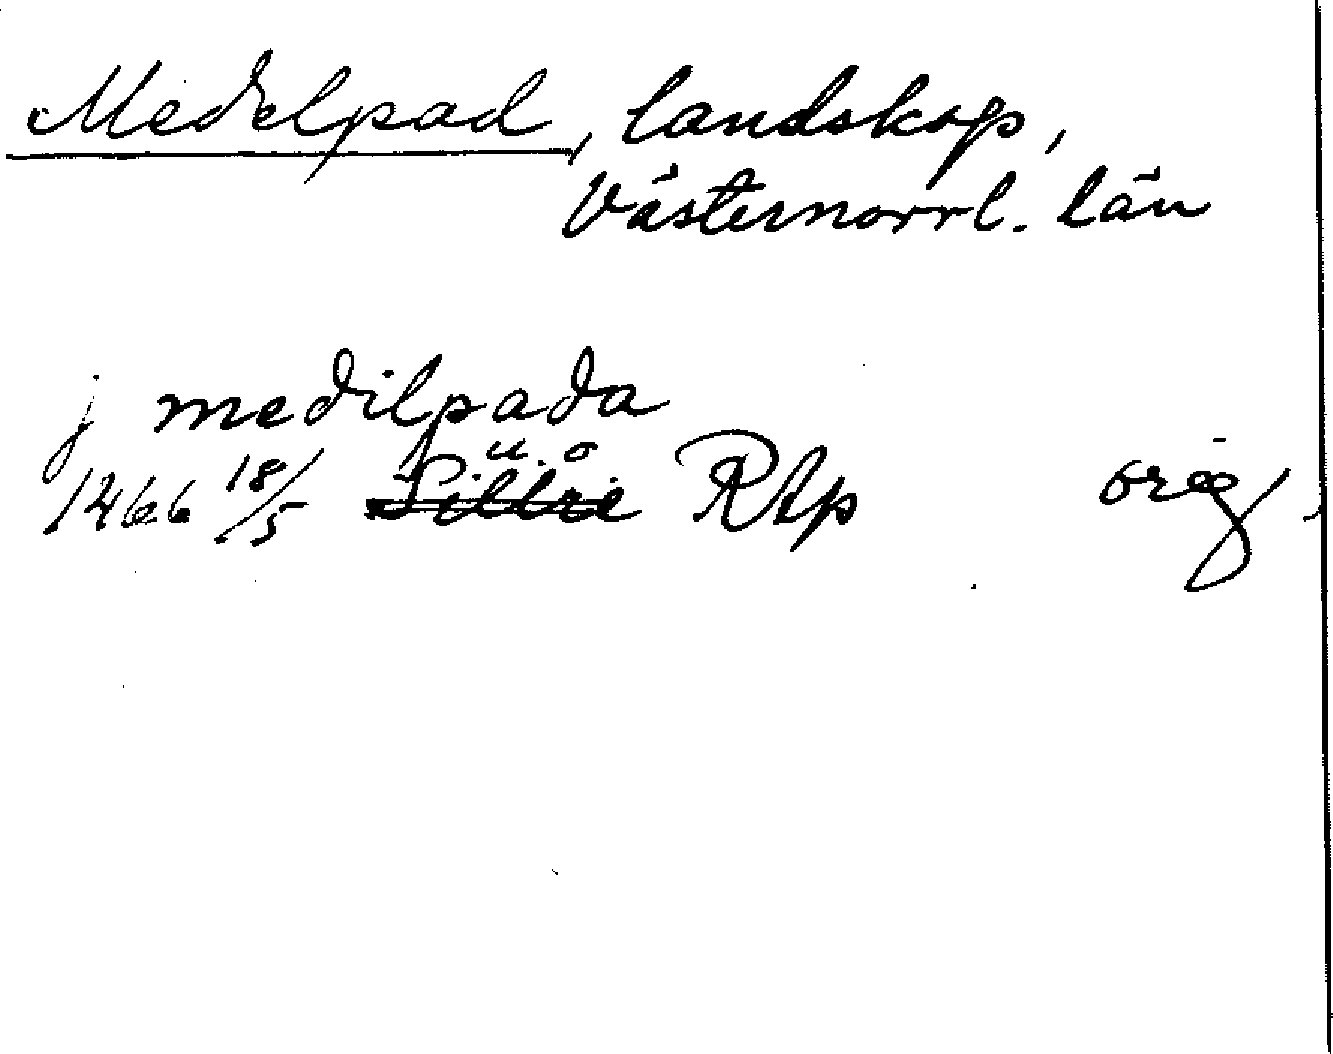 Medelpad, landskap,
Västernorrl. län
j medilpada
u. o
1466 18/5 Sillre RAp orig